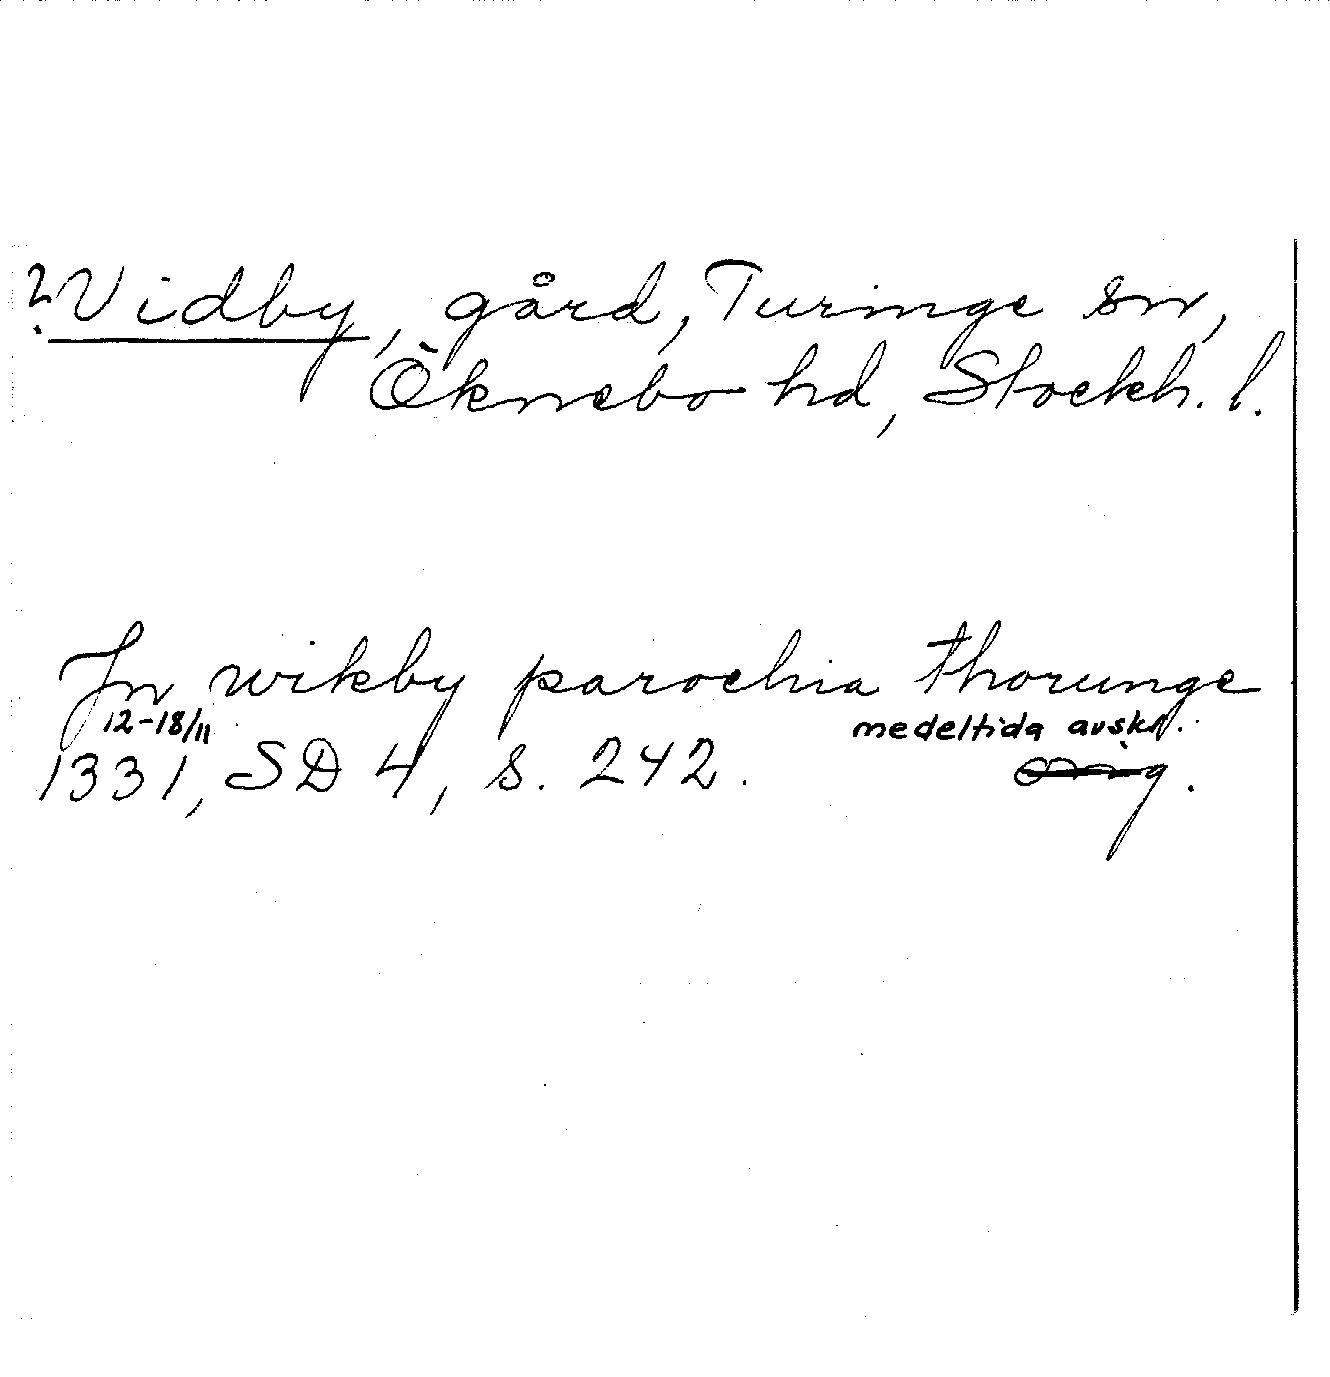 ?Vidby, gård, Turinge sn,
Öknebo hd, Stockh. l.
In wikby parochia thorunge
12-18/11 medeltida avskr.
1331, SD 4, s. 242. orig.